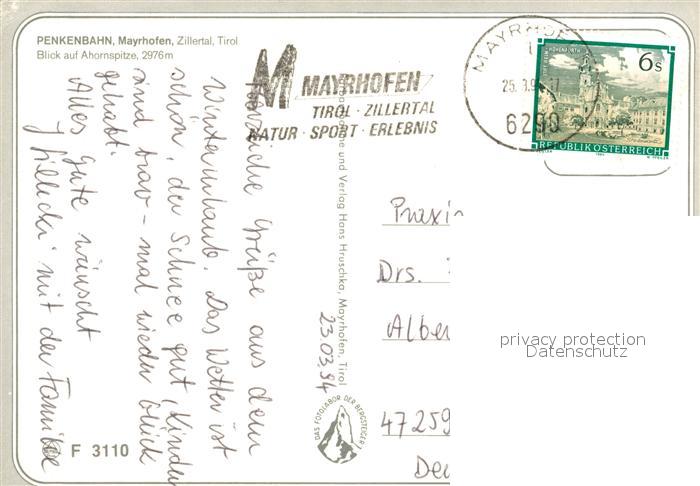 PENKENBAHN, Mayrhofen, Zillertal, Tirol
Blick auf Ahornspitze, 2976 m
M MAYRHOFEN
TIROL · ZILLERTAL
NATUR · SPORT · ERLEBNIS
MAYRHOF
25. 3. 9
6290
6 S
REPUBLIK ÖSTERREICH
Herzliche Grüße aus dem
Winterurlaub. Das Wetter ist
schön, der Schnee gut, Kinder
sind brav - mal wieder Glück
gehabt.
Alles Gute wünscht
mit der Familie
23.03.94
und Verlag Hans Hruschka, Mayrhofen, Tirol
DAS FOTOLABOR DER BERGSTEIGER
Praxi
Drs.
Alber
47259
Deu
privacy protection
Datenschutz
F 3110